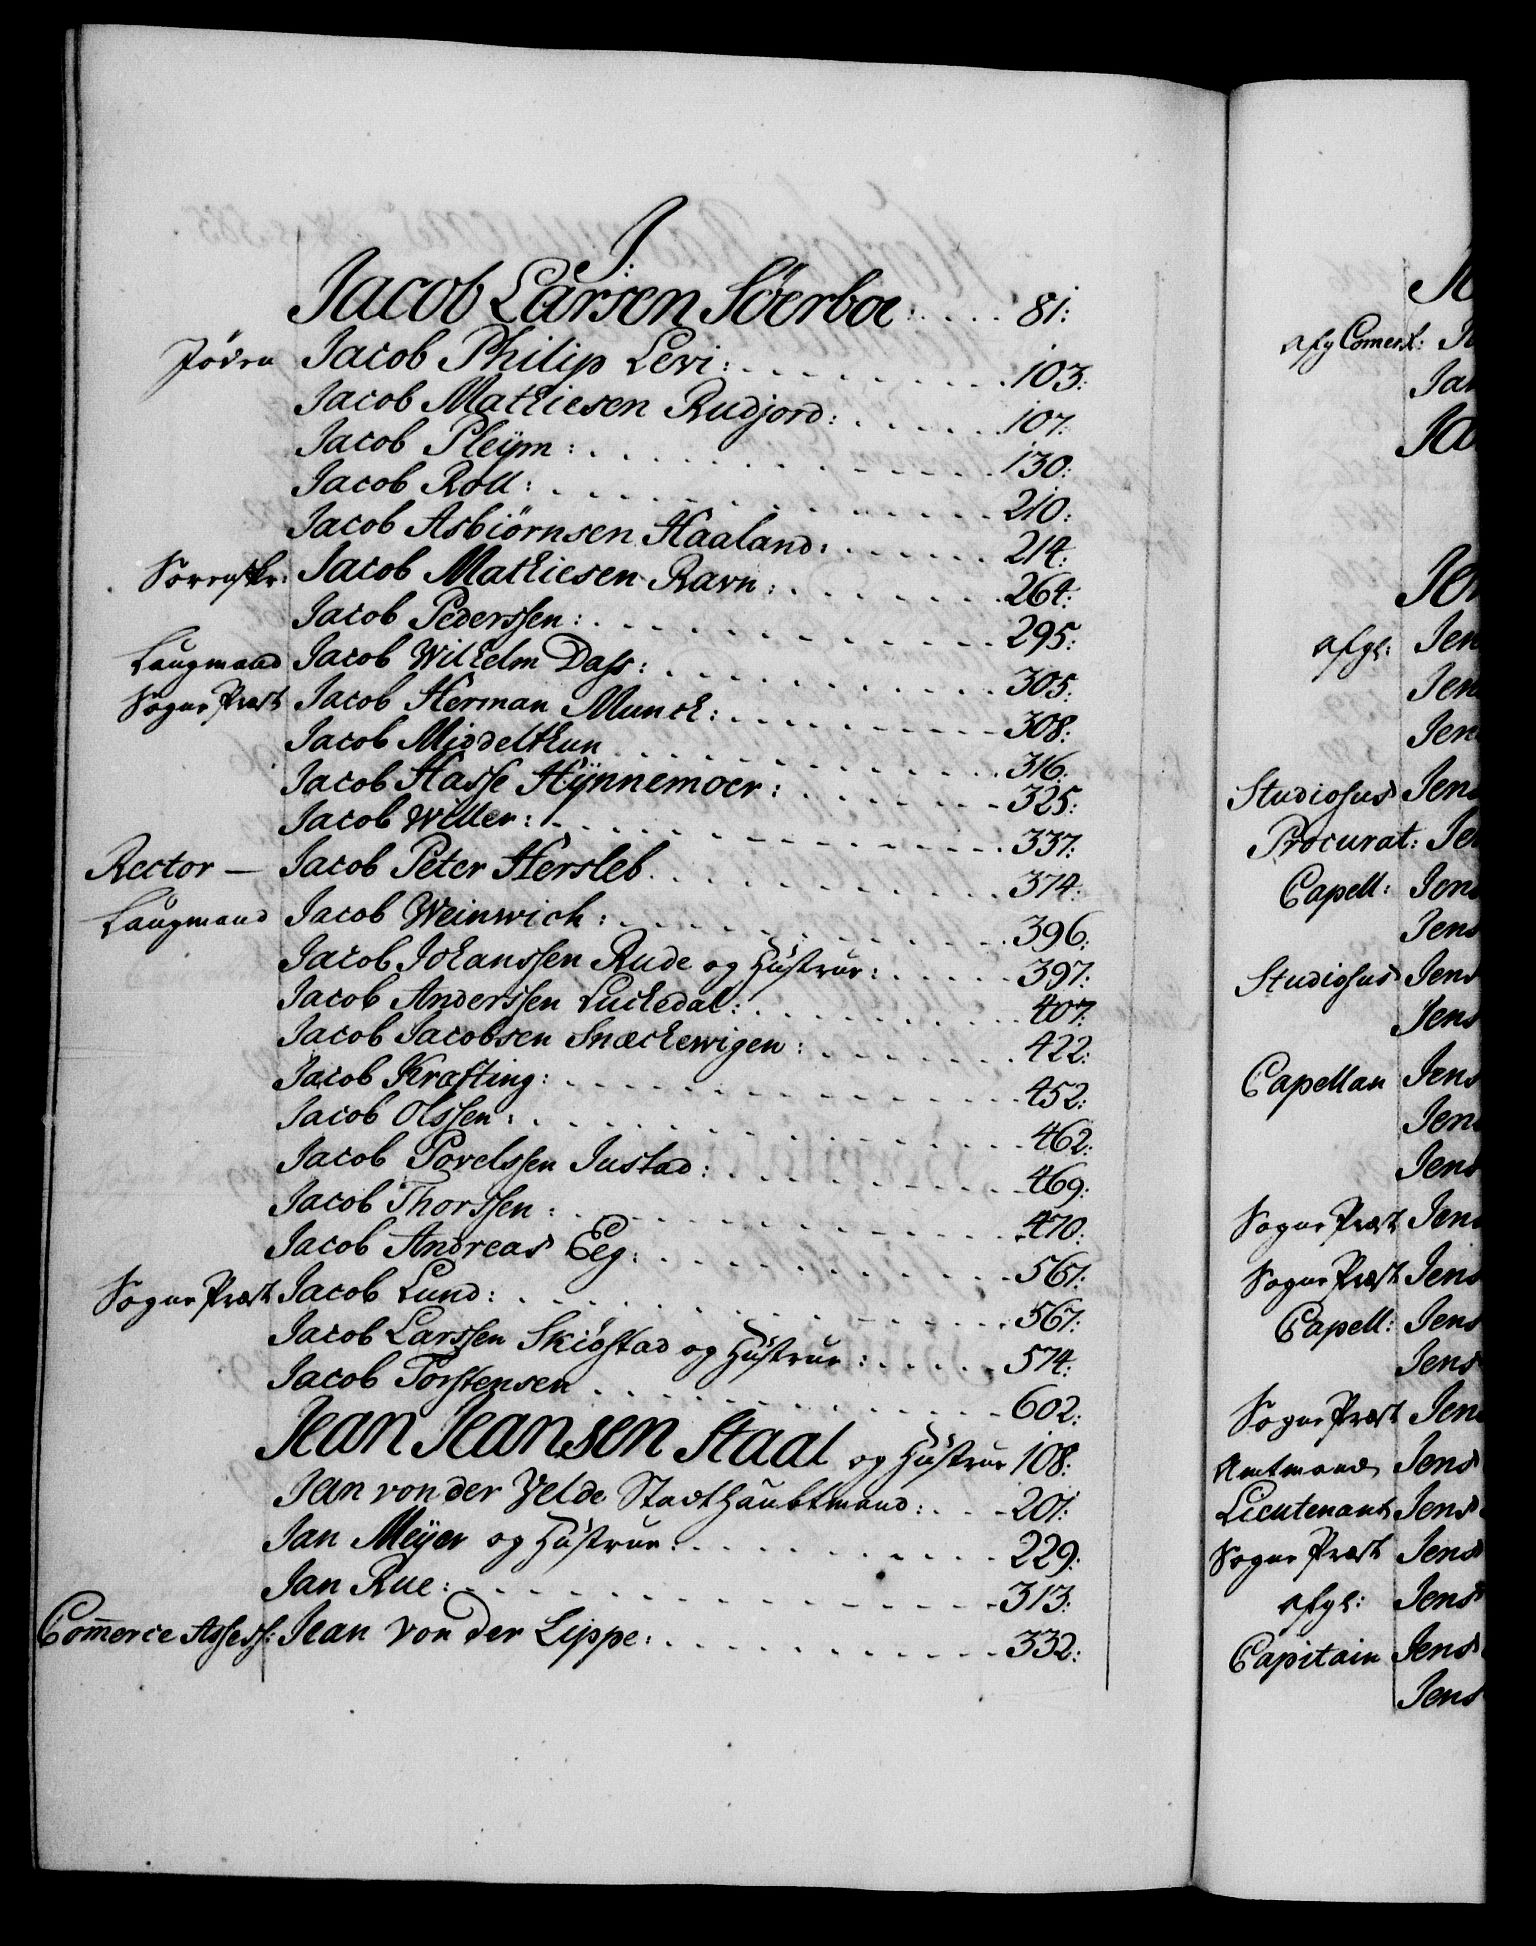 J:
Jacob Larsen Söerboe: 81:
Jöden Jacob Philip Levi: 103:
Jacob Mathiesen Rudjord: 107:
Jacob Pleÿm: 130:
Jacob Roll: 210:
Jacob Asbiörnsen Haaland: 214:
Sorenskr: Jacob Mathiesen Ravn: 264:
Jacob Pederssen: 295:
Laugmand Jacob Wilhelm Dass: 305:
Sogne Præst Jacob Herman Munch: 308:
Jacob Middelthun 316:
Jacob Hasse Hÿnnemoer: 325:
Jacob Willer: 337:
Rector — Jacob Peter Hersleb 374:
Laugmand Jacob Weinwich: 396:
Jacob Johanssen Rude og Hustrue: 397:
Jacob Anderssen Luchsdal: 407:
Jacob Jacobsen Snæchewigen: 422:
Jacob Kræfting: 452:
Jacob Olssen: 462:
Jacob Povelssen Justad: 469:
Jacob Thorssen: 470:
Jacob Andreas Eeg: 567:
Sogne Præst Jacob Lund: 567:
Jacob Larssen Skiöstad og Hustrue: 574:
Jacob Torstensen 602:
Jean Jeansen Staal og Hustrue 108:
Jean von der Velde Stadthaubtmand: 201:
Jan Meÿer og Hustrue: 229:
Jan Rue: 313:
Com̅erce Assess: Jean von der Lippe: 332:
afg Comerl:
Jan
afgl: Jen
Jen
Jen
Studiosus Jens
Procurat: Je
Capell: Jens
Jens
Studiosus Jens
Jens
Capellan Jens
Jens
Jens
Sogne Præst Jens
Sogne Præst Jens
Capell: Jens
Jens
Sogne Præst Jens
Amtmand Jens
Lieutenant Jens
Sogne Præst Jens
afgl: Jens
Capitain Jens
Jens